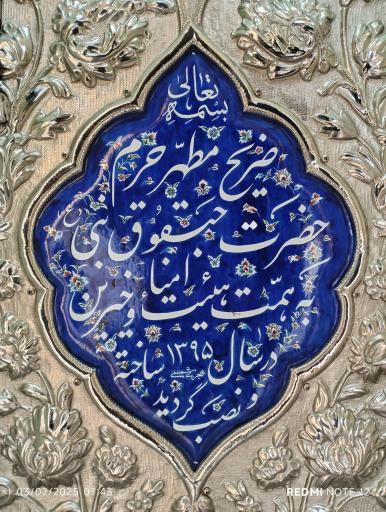 بسمه تعالی
ضریح مطهر حرم
حضرت حیقوق نبی
به همت هیئت امنا و خیرین
در سال ۱۳۹۵ ساخته
و نصب گردید
03/02/2025 07:43
REDMI NOTE 12